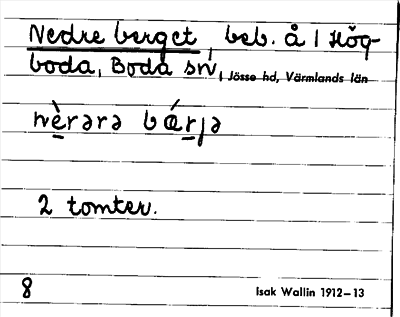 Nedre berget, beb. å 1 Hög-
boda, Boda sn, Jösse hd, Värmlands län
nè̠rərə bǽr̠jə
2 tomter.
8 Isak Wallin 1912–13